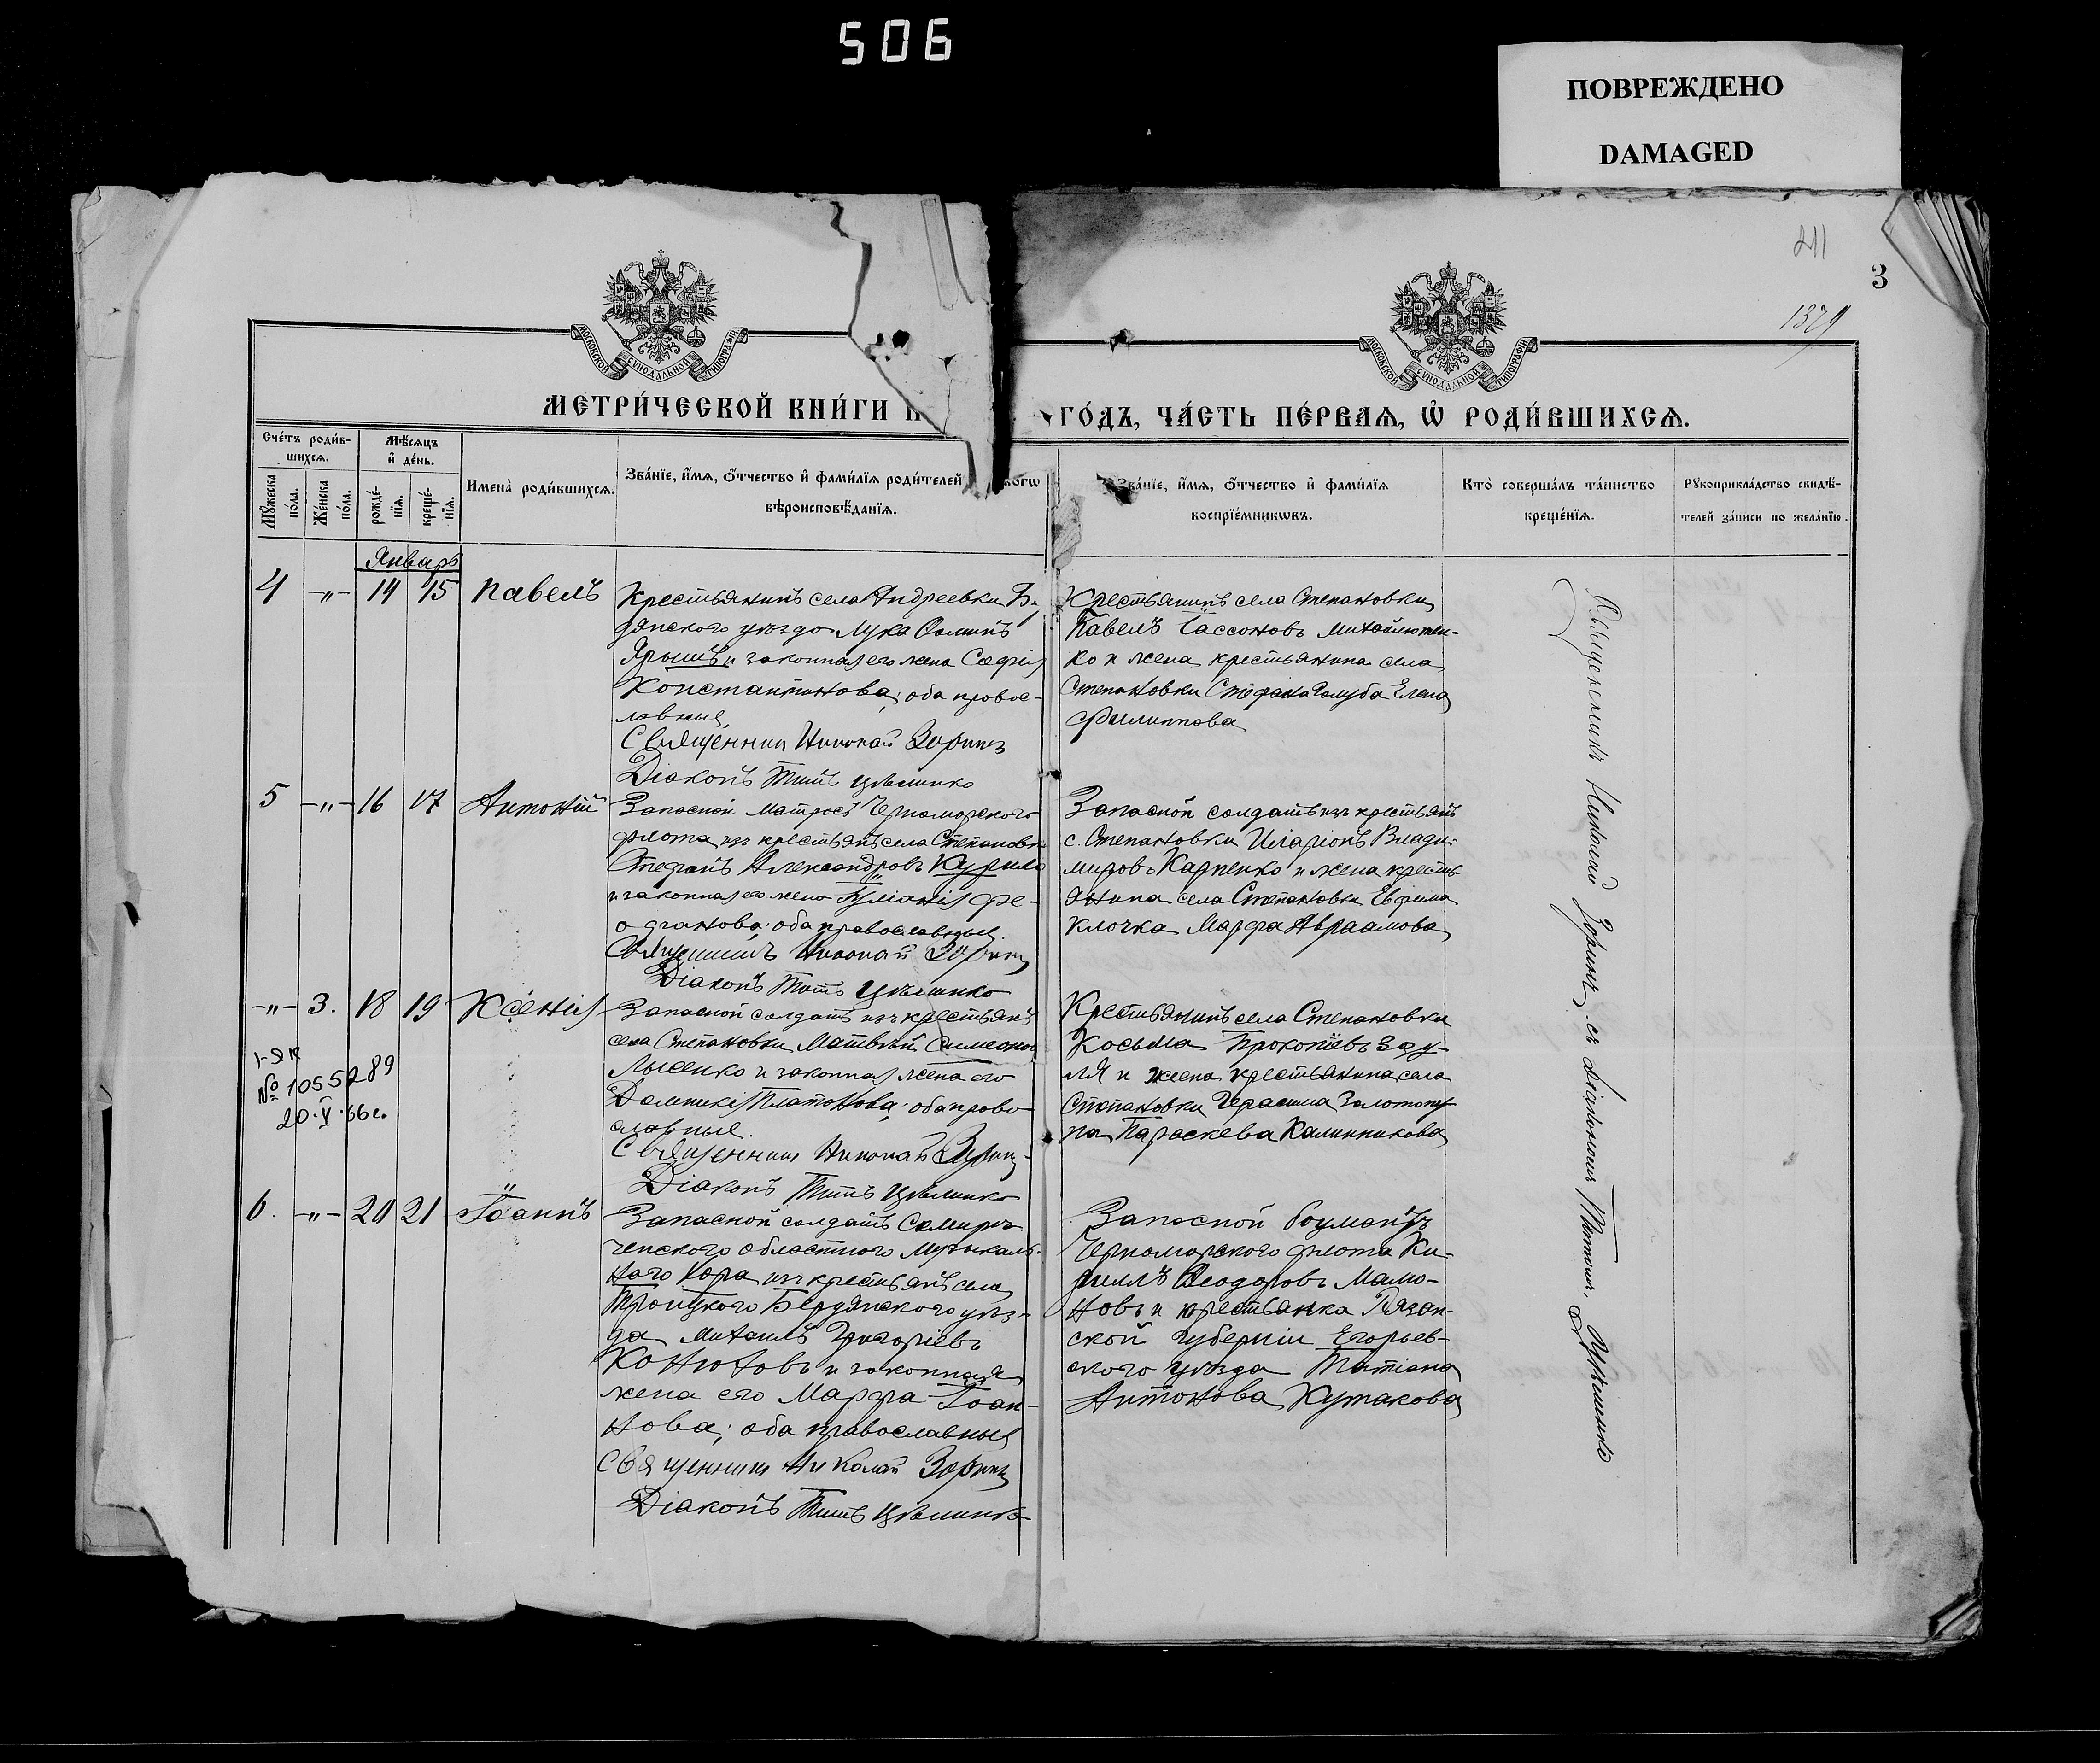 506
ПОВРЕЖДЕНО
DAMAGED
211
3
1379
МОСКОВСКОЙ СѴНОДАЛЬНОЙ ТИПОГРАФІИ
МОСКОВСКОЙ СѴНОДАЛЬНОЙ ТИПОГРАФІИ
МЕТРИ́ЧЕСКОЙ КНИ́ГИ Н
ГО́ДЪ, ЧА́СТЬ ПЕ́РВАѦ, Ѡ҆ РОДИ́ВШИХСѦ.
Сче́тъ роди́в-
шихсѧ.
Мѣ́сѧцъ
и҆ де́нь.
Мꙋ́жеска
по́ла.
Же́нска
по́ла.
рожде́-
нїѧ.
креще́-
нїѧ.
Имена̀ роди́вшихсѧ.
Зва́нїе, и҆́мѧ, ѻ҆́тчество и҆ фамѝлїѧ роди́телей
когѡ
вѣроисповѣ́данїѧ.
Зва́нїе, и҆́мѧ, ѻ҆́тчество и҆ фами́лїѧ
воспрїе́мникѡвъ.
Кто̀ соверша́лъ та́инство
креще́нїѧ.
Рꙋкоприкла́дство свидѣ́-
телей за́писи по жела́нїю.
Январь
4 -„- 14 15 Павелъ
Крестьянинъ села Андреевки Б.
дянскаго уѣзда Лука Ѳоминъ
Ярышъ и законная его жена Софія
Константинова; оба правос-
лавные.
Священникъ Николай Зоринъ
Діаконъ Титъ
Крестьянинъ села Степановки
Павелъ Іассоновъ Михайлютен-
ко и жена крестьянина села
Степановки Стефана Голуба Елена
Филиппова
5 -„- 16 17 Антоній
Запасной матросъ Черноморскаго
флота изъ крестьянъ села Степановки
Стефанъ Александровъ Курило
и законная его жена Іуліанія Ѳе-
оханова; оба православные.
Священникъ Николай Зоринъ
Діаконъ Титъ
Запасной солдатъ изъ крестьянъ
с. Степановки Иларіонъ Влади-
міровъ Карпенко и жена кресть-
янина села Степановки Евфима
Клочка Марфа Авраамова
-„- 3. 18 19 Ксенія
I-ЯК
№ 1055289
20.V.66г.
Запасной солдатъ изъ крестьянъ
села Степановки Матвѣй Симеоновъ
Лысенко и законная жена его
Домникія Платонова; оба право-
славные.
Священникъ Николай Зоринъ
Діаконъ Титъ
Крестьянинъ села Степановки
Косьма Прокопіевъ Заду-
ля и жена крестьянина села
Степановки Герасима Золотопу-
па Параскева Калинникова
6. -„- 20 21 Іоаннъ
Запасной солдатъ Семирѣ-
ченскаго областного музыкаль-
наго хора изъ крестьянъ села
Троицкаго Бердянскаго уѣз-
да Михаилъ Григоріевъ
Конюховъ и законная
жена его Марфа Іоан-
нова; оба православные
Священникъ Николай Зоринъ
Діаконъ Титъ
Запасной боцманъ
Черноморскаго флота Ки-
риллъ Ѳеодоровъ Мамо-
новъ и крестьянка Рязан-
ской губерніи Егорьев-
скаго уѣзда Татіана
Антонова Кутакова
Священникъ Николай Зоринъ съ діакономъ Титомъ